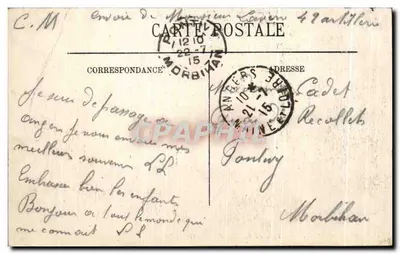 C. M envoie de Monsieur 42 artillerie
CARTE POSTALE
PONTIVY
12 10
22-7
15
MORBIHAN
CORRESPONDANCE
ADRESSE
ANGERS
10
21-7
15
MAINE ET LOIRE
Je suis de passage a
angers je vous envoie mes
meilleurs souvenirs LL
Embrasse bien les enfants
Bonjour a tous le monde qui
me connait LL
M Cadet
Recollets
Pontivy
Morbihan